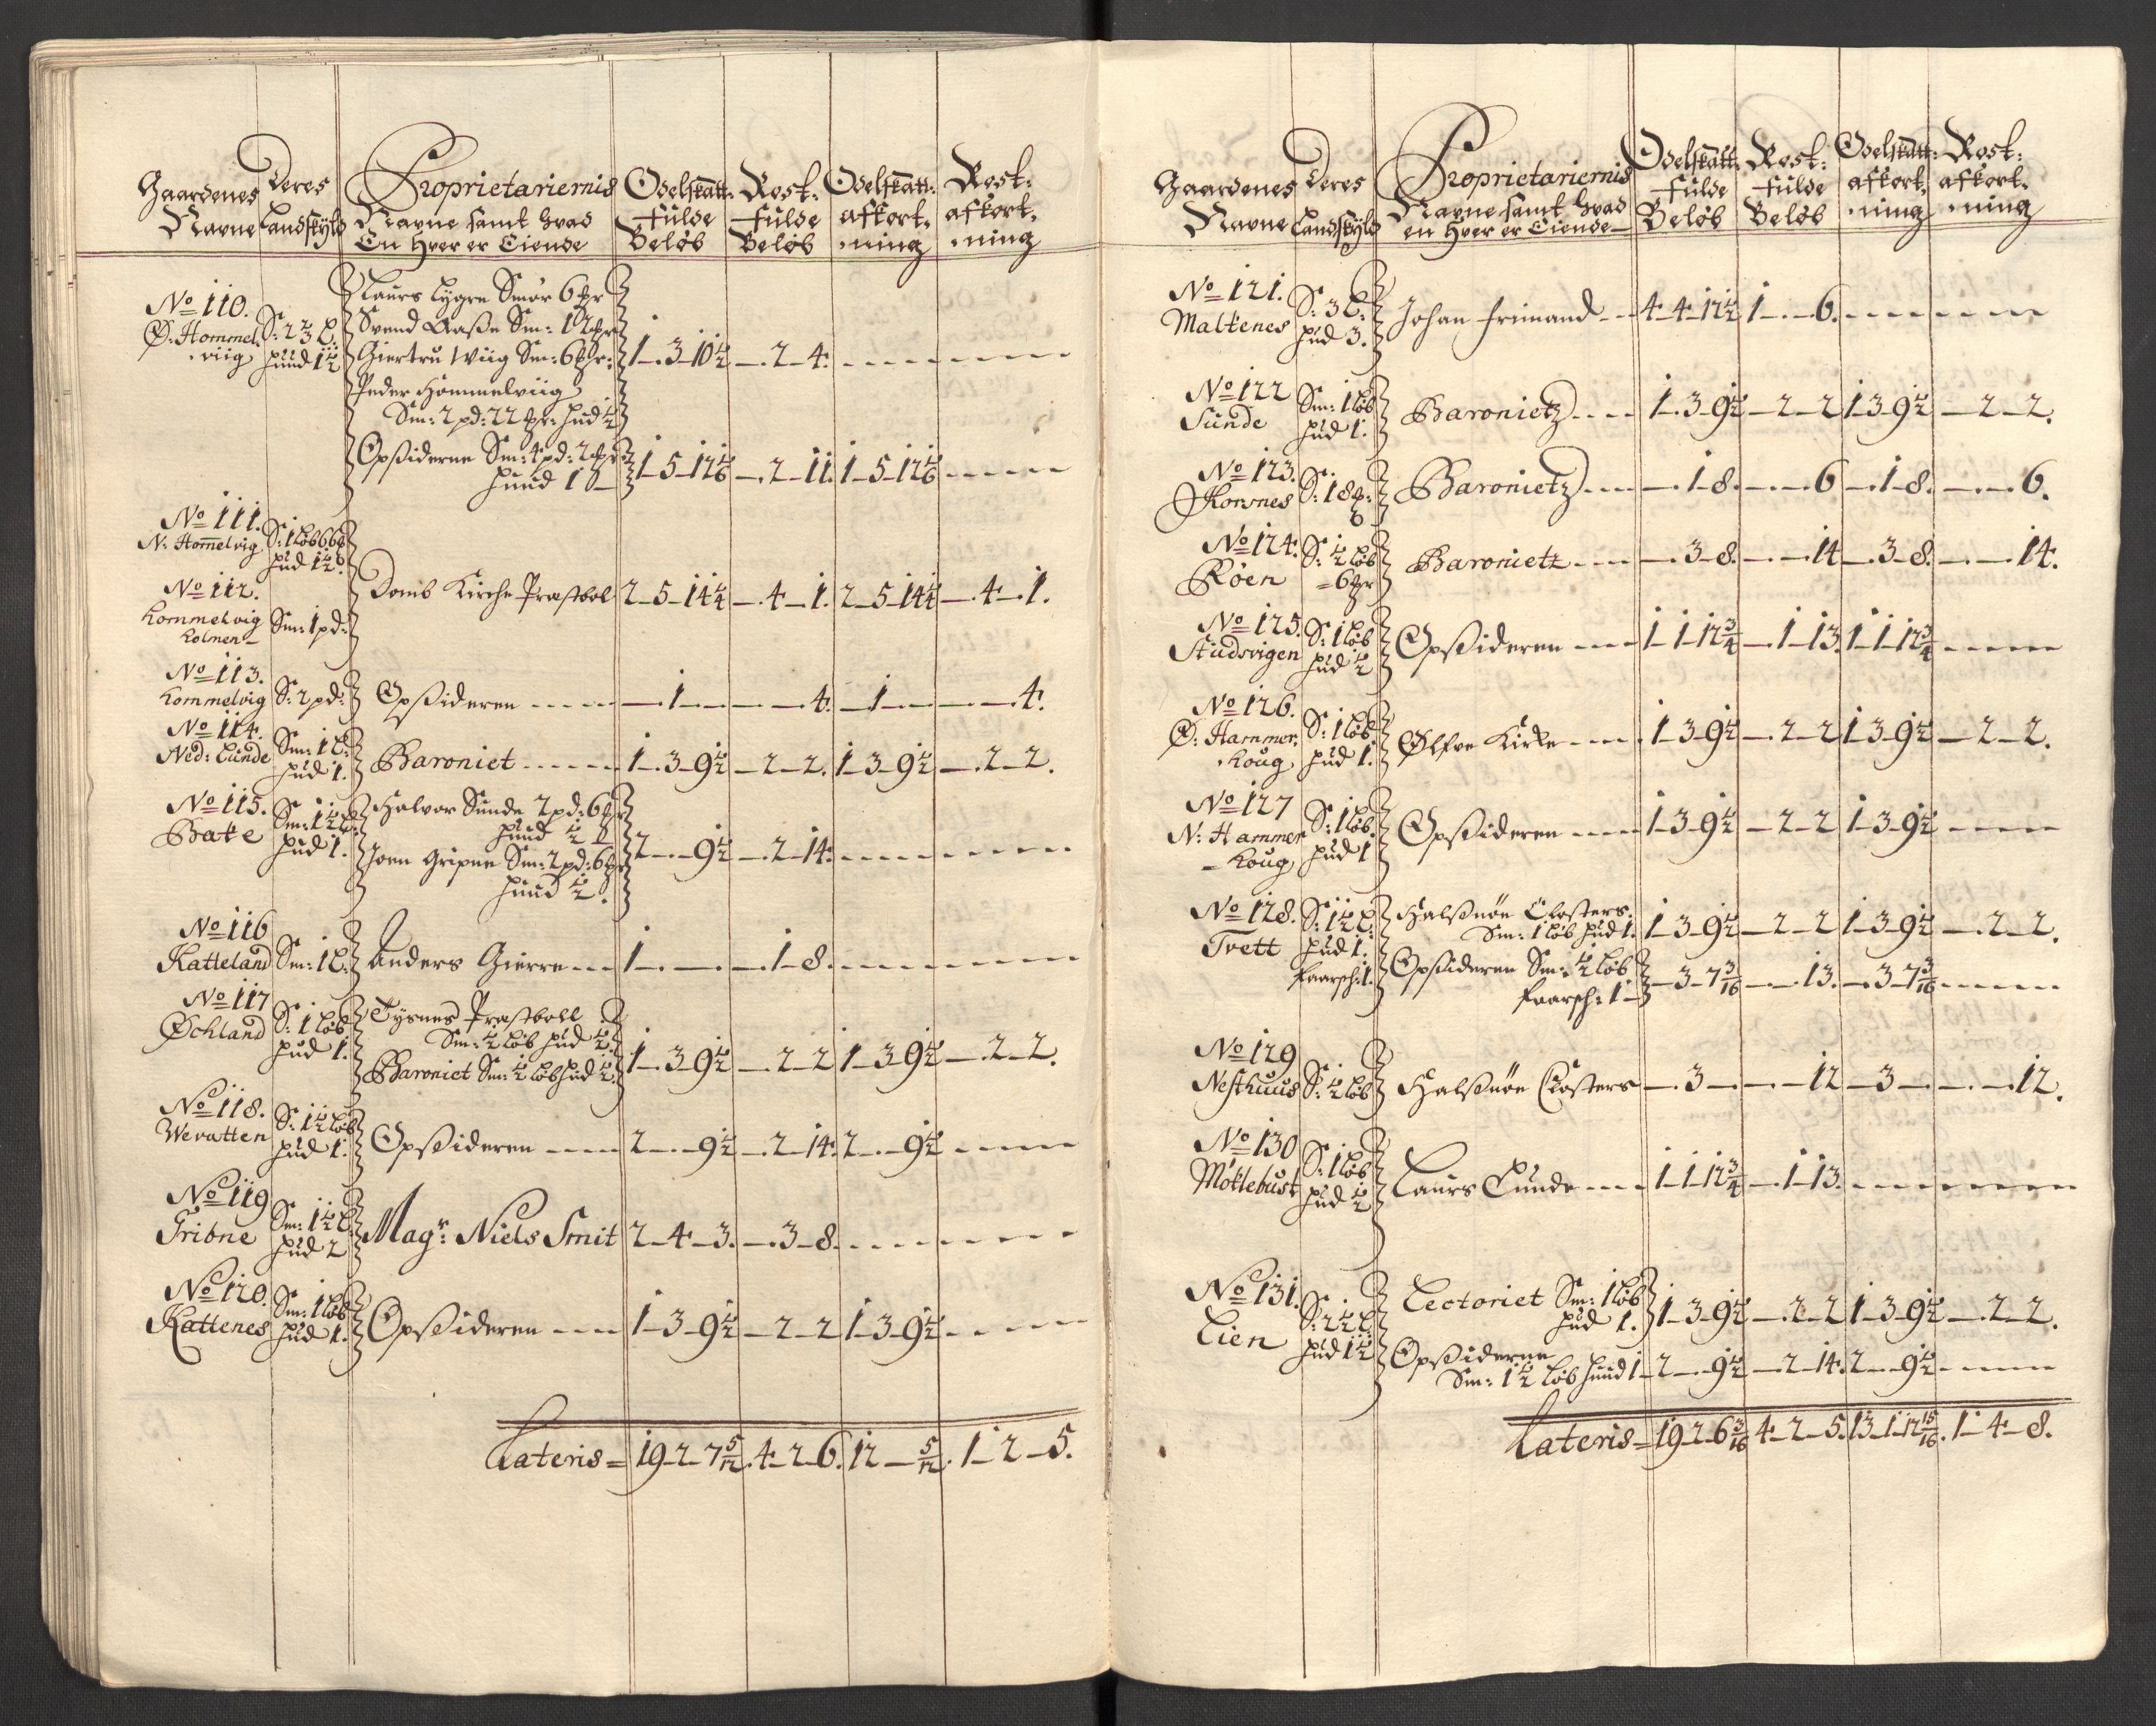 Gaardenes Navne | Deres Landskyld | Proprietariernis Navne samt hvad En hver er Eiende | Odelskatt: fulde Beløb | Rost: fulde Beløb | Odelskatt: afkort: ning | Rost: afkort: ning
No 110.
Ø: Hommel: viig
hund 1½
Laurs Lygre Smør 6 ßpr
Svend Aaße Sm: 12 ßpr
Giertru Wiig Sm: 6 ßpr: 1-3-10½ -2-4.
Peder Hommelviig
Sm: 2 pd: 22 ßpr: hud ½
Opßiderne Sm: 4 pd: 2 ßpr
hund 1 1-5-12⅙ -2-11. 1-5-12⅙
No 111.
N: Homelvig
hud 1½
No 112.
Hommelvig
holmen
Sm: 1 pd:
Domb Kirche Præstbol 2-5-14¼ -4-1. 2-5-14¼ -4-1.
No 113.
Hommelvig S: 2 pd: Opßideren -1- -4. -1- -4.
No 114.
Ned: Lunde Sm: 1 L: hud 1. Baroniet 1-3-9½ -2-2. 1-3-9½ -2-2.
No 115.
Bate Sm: 1½ L: hud 1.
Halvor Sunde 2 pd: 6 ßpr
hund ½
Joen Gripne Sm: 2 pd: 6 ßpr
hund ½. 2-9½ -2-14.
No 116
Katteland Sm: 1 L: Anders Gierre 1- -1-8.
No 117
Øchland S: 1 løb hud 1.
Tysnes Præstboll
Sm: ½ løb hud ½.
Baroniet Sm: ½ løb hud ½. 1-3-9½ -2-2 1-3-9½ -2-2.
No 118.
Wevatten S: 1½ løb hud 1. Opßideren 2-9½ -2-14. 2-9½
No 119
Gribne Sm: 1½ L: hud 2 Magr: Niels Smit 2-4-3. -3-8.
No 120.
Kattenes Sm: 1 løb hud 1. Opßideren 1-3-9½ -2-2 1-3-9½
Lateris = 19-2-7 5/12. 4-2-6. 12- 5/12. 1-2-5.
Gaardenes Navne | Deres Landskyld | Proprietariernis Navne samt hvad en hver er Eiende | Odelskatt: fulde Beløb | Rost: fulde Beløb | Odelskatt: afkort: ning | Rost: afkort: ning
No 121.
Maltenes S: 3 L: hud 3. Johan Frimand 4-4-12½ 1-6.
No 122
Sunde Sm: 1 løb hud 1. Baronietz 1-3-9½ -2-2 1-3-9½ -2-2.
No 123.
Korsnes S: 18 Baronietz -1-8. -6 -1-8. -6.
No 124.
Røen S: ½ løb - 6 ßpr Baronietz -3-8. -14 -3-8. -14.
No 125.
Studsvigen S: 1 løb hud ½ Opßideren 1-1-12¾ -1-13. 1-1-12¾
No 126.
Ø: Hammer: houg S: 1 løb. hud 1. Ølfve Kirke 1-3-9½ -2-2 1-3-9½ -2-2.
No 127
N: Hammer - houg S: 1 løb. hud 1 Opßideren 1-3-9½ -2-2 1-3-9½
No 128.
Tvett S: 1½ L: hud 1. faarsk: 1.
Halßnøe Closters.
Sm: 1 løb hud 1. 1-3-9½ -2-2 1-3-9½ -2-2.
Opßideren Sm: ½ løb
faarsk: 1 -3-7 3/16 -13. -3-7 3/16
No 129
Nesthuus S: ½ løb Halßnøe Closters -3- -12 -3- -12.
No 130
Møklebust S: 1 løb hud ½ Laurs Lunde 1-1-12¾ -1-13.
No 131.
Lien S: 2½ L: hud 1½
Lectoriet Sm: 1 løb
hud 1. 1-3-9½ -2-2 1-3-9½ -2-2.
Opßiderne
Sm: 1½ løb hund 1 2-9½ -2-14. 2-9½
Lateris = 19-2-6 3/16 4-2-5. 13-1-12 15/16. 1-4-8.